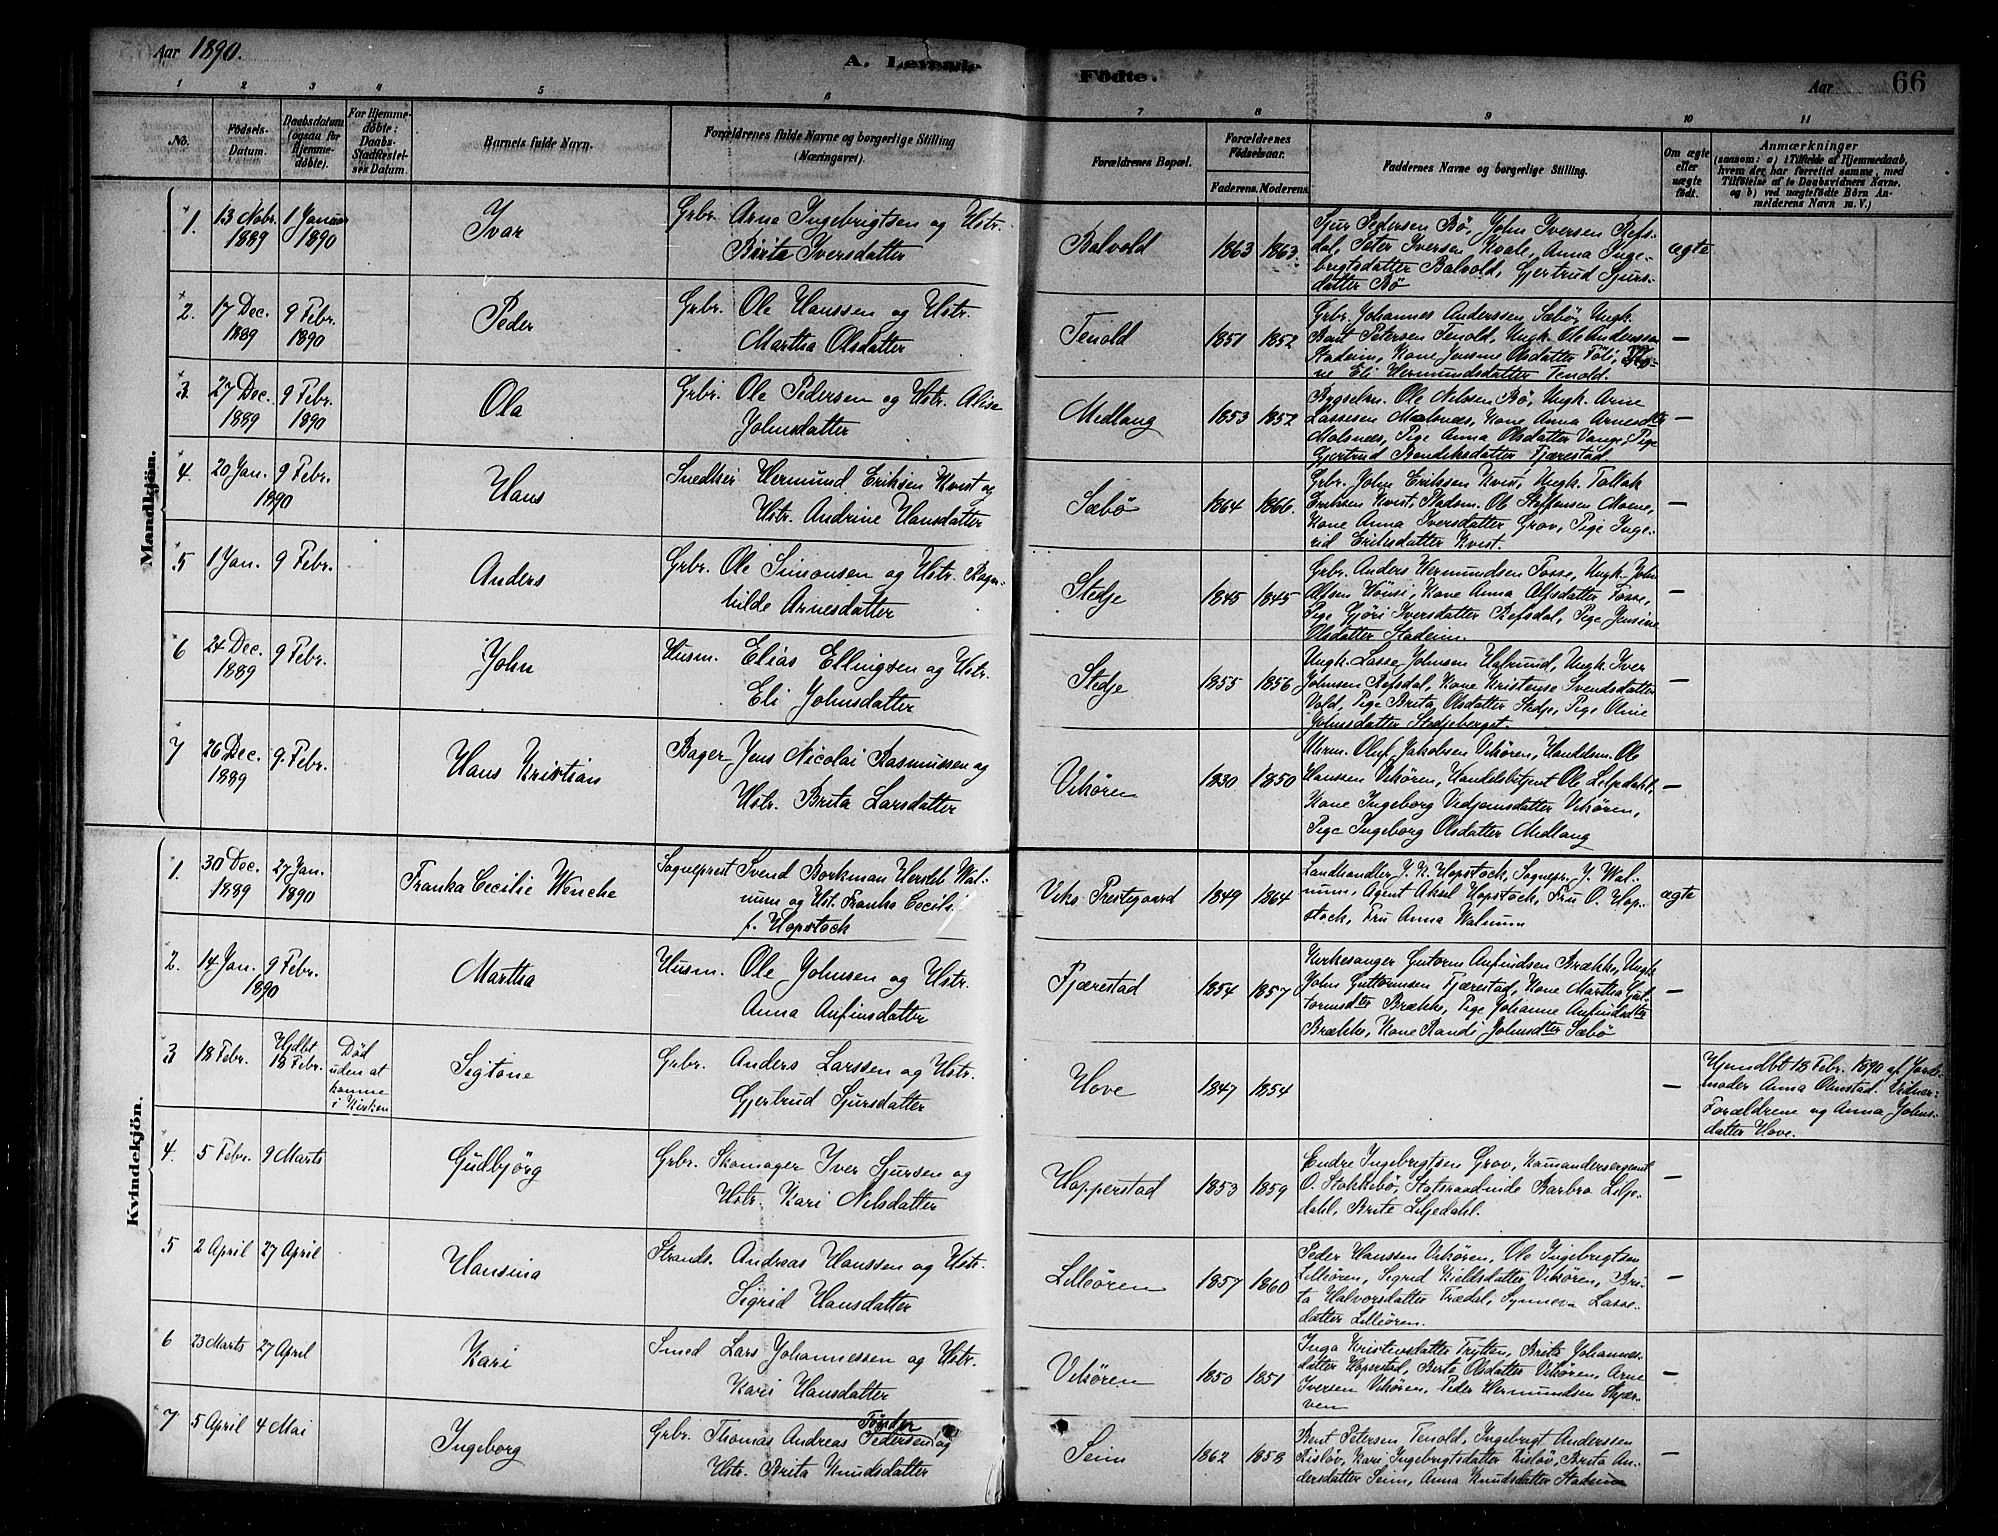 Aar 1890.
A. Levende
Fødte.
Aar
66
1 2 3 4 5 6 7 8 9 10 11
No.
Fødsels-
Datum.
Daabsdatum
(ogsaa for
Hjemme-
døbte).
For Hjemme-
døbte:
Daabs-
Stadfæstel-
ses Datum.
Barnets fulde Navn.
Forældrenes fulde Navne og borgerlige Stilling
(Næringsvei).
Forældrenes Bopæl.
Forældrenes
Fødselsaar.
Faderens. Moderens.
Faddernes Navne og borgerlige Stilling.
Om ægte
eller
uægte
født.
Anmærkninger
(saasom: a) i Tilfælde af Hjemmedaab,
hvem der har forrettet samme, med
Tilføielse af to Daabsvidners Navne,
og b) ved uægtefødte Børn An-
melderens Navn m. V.)
Mandkjön.
1. 13 Nobr. 1889
1 Januar 1890
Ivar
Grbr. Arna Ingebrigtsen og Hstr.
Brita Iversdatter
Balvold
1863 1863
Sjur Pedersen Bø, John Iversen Refs-
dal, Peter Iversen Kvale, Anna Inge-
brigtsdatter Balvold, Gjertrud Sjurs-
datter Bø
ægte
2. 17 Dec. 1889
9 Febr. 1890
Peder
Grbr. Ole Hanssen og Hstr.
Martha Olsdatter
Tenold
1851 1852
Grbr. Johannes Anderssen Sæbø, Ungk.
Bent Petersen Tenold, Ungk. Ole Anderssen
Stadem, Kone Jensine Olsdatter Föli,
Eli Hermundsdatter Tenold.
—
3 27 Dec. 1889
9 Febr. 1890
Ola
Grbr. Ole Pedersen og Hstr. Alise
Johnsdatter
Midlang
1853 1852
Bygselm. Ole Nilssen Bø, Ungk. Arne
Lassesen Malsnæs, Kone Anna Arnesdtr
Malsnæs, Pige Anna Olsdatter Vange, Pige
Gjertrud Bendiksdatter Fjærestad
—
4. 20 Jan. 9 Febr.
1890
Hans
Snedker Hermund Eriksen Kvist og
Hstr. Andrine Hansdatter
Sæbø
1864 1866
Grbr. John Eriksen Kvist, Ungk. Tollak
Eriksen Kvist, Pladsm. Ole Steffensen Moene,
Kone Anna Iversdatter Grov, Pige Inge-
rid Eriksdatter Kvist.
—
5 1 Jan. 9 Febr.
Anders
Grbr. Ole Simonsen og Hstr. Ragn-
hilde Arnesdatter
Stedje
1845 1845
Grbr. Anders Hermundsen Fosse, Ungk. John
Olsen Hönsi, Kone Anna Olsdatter Fosse,
Pige Gjöri Iversdatter Refsdal, Pige Jensine
Olsdatter Stadem.
—
6 24 Dec. 1889
9 Febr.
John
Husm. Elias Ellingsen og Hstr.
Eli Johnsdatter
Stedje
1855 1856
Ungk. Lasse Johnsen Halrund, Ungk. Iver
Johnsen Refsdal, Kone Kristense Svendsdatter
Vold, Pige Brita Olsdatter Stedje, Pige Oline
Johnsdatter Stedjeberget.
—
7 26 Dec. 1889
9. Febr.
Hans Kristian
Bager Jens Nicolai Rasmussen og
Hstr. Brita Larsdatter
Vikören
1830 1850
Uhrm. Oluf Jakobsen Vikören, Handelsm. Ole
Hanssen Vikören, Handelsbetjent Ole Liljedahl,
Kone Ingeborg Vedjomsdatter Vikören,
Pige Ingeborg Olsdatter Midlang
—
Kvindekjön.
1. 30 Dec. 1889
27 Jan. 1890
Franka Cecilie Wenche
Sognepræst Svend Borkman Hersleb Wal-
num og Hst. Franka Cecilie
f. Hopstock
Viks Præstegaard
1849 1864
Landhandler J. K. Hopstock, Sognepr. J. Wal-
num, Agent Aksel Hopstock, Fru O. Hop-
stock, Fru Anna Walnum
ægte
2. 14 Jan. 9 Febr.
1890
Martha
Husm. Ole Johnsen og Hstr.
Anna Anfinsdatter
Fjærestad
1854 1857
Kirkesanger Guttorm Anfindsen Brække, Ungk
John Guttormsen Fjærestad, Kone Martha Gut-
tormsdtr Brække, Pige Johanne Anfindsdtr
Brække, Kone Randi Johnsdtr Sæbö
—
3 18 Febr.
Hjdbt
18 Febr.
Död
uden at
komme
i Kirken
Sigtone
Grbr. Anders Larssen og Hstr.
Gjertrud Sjursdatter
Hove
1847 1854
—
Hjmdbt 18 Febr. 1890 af Jord-
moder Anna Ømstad. Vidner:
Forældrene og Anna Johns-
datter Hove.
4. 5 Febr. 9 Marts
Gudbjörg
Grbr. Skomager Iver Sjursen og
Hstr. Kari Nilsdatter
Hopperstad
1853 1859
Endre Ingebrigtsen Grov, Komandersergent
O. Stokkebö, Statsraadinde Barbra Lilje-
dahl, Brite Liljedahl.
—
5 2 April 27 April
Hansina
Strands. Andreas Hanssen og Hstr.
Sigrid Hansdatter
Lilleören
1857 1860
Peder Hanssen Vikören, Ole Ingebrigtsen
Lilleören, Sigrid Kieldsdatter Vikören, Bri-
ta Halvorsdatter Trædal, Synneva Lasse-
datter Lilleören.
—
6 23 Marts 27 April
Kari
Smed Lars Johannessen og Hstr.
Kari Hansdatter
Vikören
1850 1851
Inga Kristensdatter Trytten, Brita Johannes-
datter Hoperstad, Brita Olsdatter Vikören, Arne
Iversen Vikören, Peder Hermundsen Skjær-
ven
—
7 5 April 4 Mai
Ingeborg
Grbr. Thomas Andreas Pedersen Tønder og
Hstr. Brita Knudsdatter
Seim
1862 1858
Bent Petersen Tenold, Ingebrigt Anderssen
Risløv, Kari Ingebrigtsdatter Risløv, Brita An-
dersdatter Seim, Anna Knudsdatter Stadem
—